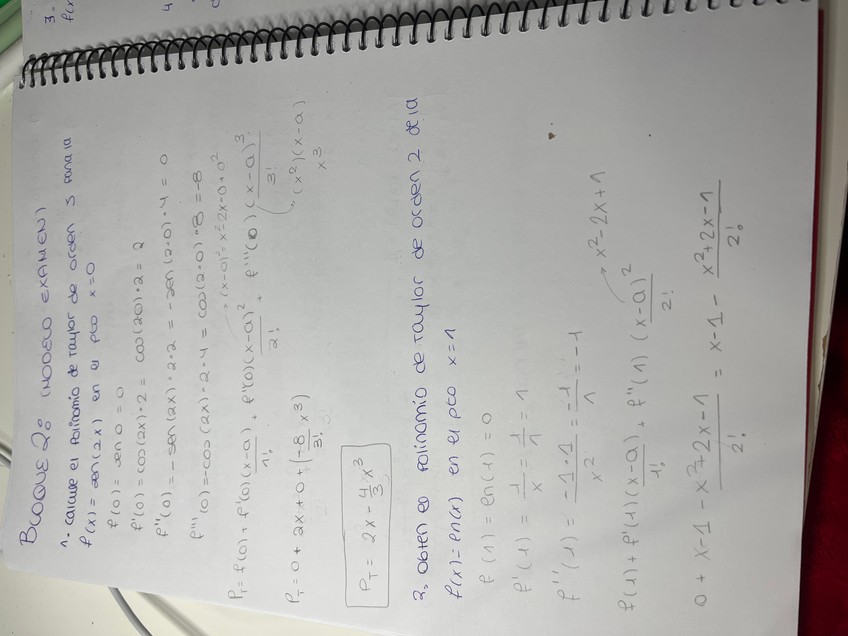 BLOQUE 2: (MODELO EXAMEN)
1- calcule el polinomio de taylor de orden 3 para la
f(x) = sen(2x) en el pto x=0
f(0) = sen 0 = 0
f'(0) = cos(2x)·2 = cos(2·0)·2 = 2
f''(0) = -sen(2x)·2·2 = -sen(2·0)·4 = 0
f'''(0) = -cos(2x)·2·4 = cos(2·0)·8 = -8
→ (x-0)² = x²-2x·0+0²
P_T = f(0) + f'(0)(x-a)/1! + f''(0)(x-a)²/2! + f'''(0)(x-a)³/3!
(x²)(x-a)
x3
P_T = 0 + 2x + 0 + (-8/3! x³)
P_T = 2x - 4/3 x³
2. Obten el polinomio de taylor de orden 2 de la
f(x) = ln(x) en el pto x=1
f(1) = ln(1) = 0
f'(1) = 1/x = 1/1 = 1
f''(1) = -1·1/x² = -1/1 = -1
→ x²-2x+1
f(1) + f'(1)(x-a)/1! + f''(1)(x-a)²/2!
0 + x-1 - x²+2x-1/2! = x-1 - x²+2x-1/2!
3-
f(x
4